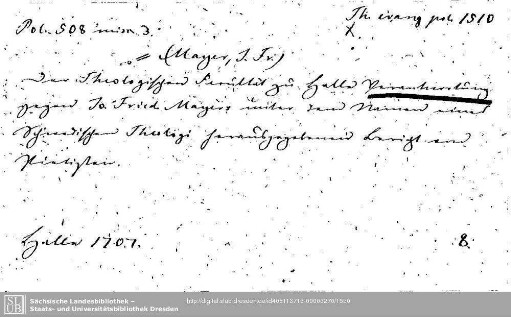 Pol. 508 misc. 3.
Th. evang pol. 1510
X
= (Mayer, J. Fr.)
Der Theologischen Facultät zu Halle Verantwortung
gegen Jo. Fried Mayers unter dem Namen eines
Schwedischen Theologi herausgegebenen Bericht von
Pietisten.
Halle 1707. 8.
SLUB
Sächsische Landesbibliothek –
Staats- und Universitätsbibliothek Dresden